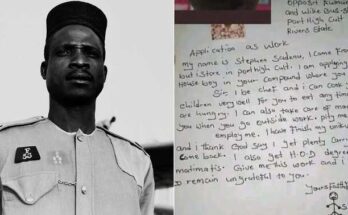 Opposit
and Wike Bus S
Port High Cutt
Rivers State
Application as work
my name is Stephen I come From
but I store in Port High Cutt. I am applying
House boy in your compound where you
Sir. I be chef and i can cook
children very well for you to eat any time
are hungry. I can also take care of ma
you when you go outside work. plz me
employ me. I have finish my
and I thank God say I get plenty carry
come back. I also get H.O.D degree
matimatis. Give me this work and i
remain ungrateful to you.
Yours Faithf
S